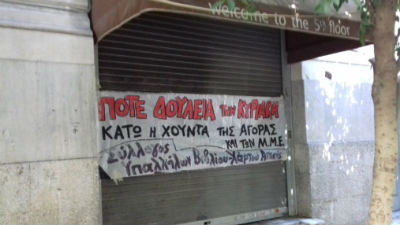 welcome to the 5th floor
ΠΟΤΕ ΔΟΥΛΕΙΑ την ΚΥΡΙΑΚΗ
ΚΑΤΩ Η ΧΟΥΝΤΑ ΤΗΣ ΑΓΟΡΑΣ
ΚΑΙ ΤΩΝ Μ.Μ.Ε.
Σύλλογος
Υπαλλήλων Βιβλίου-Χάρτου Αττικής